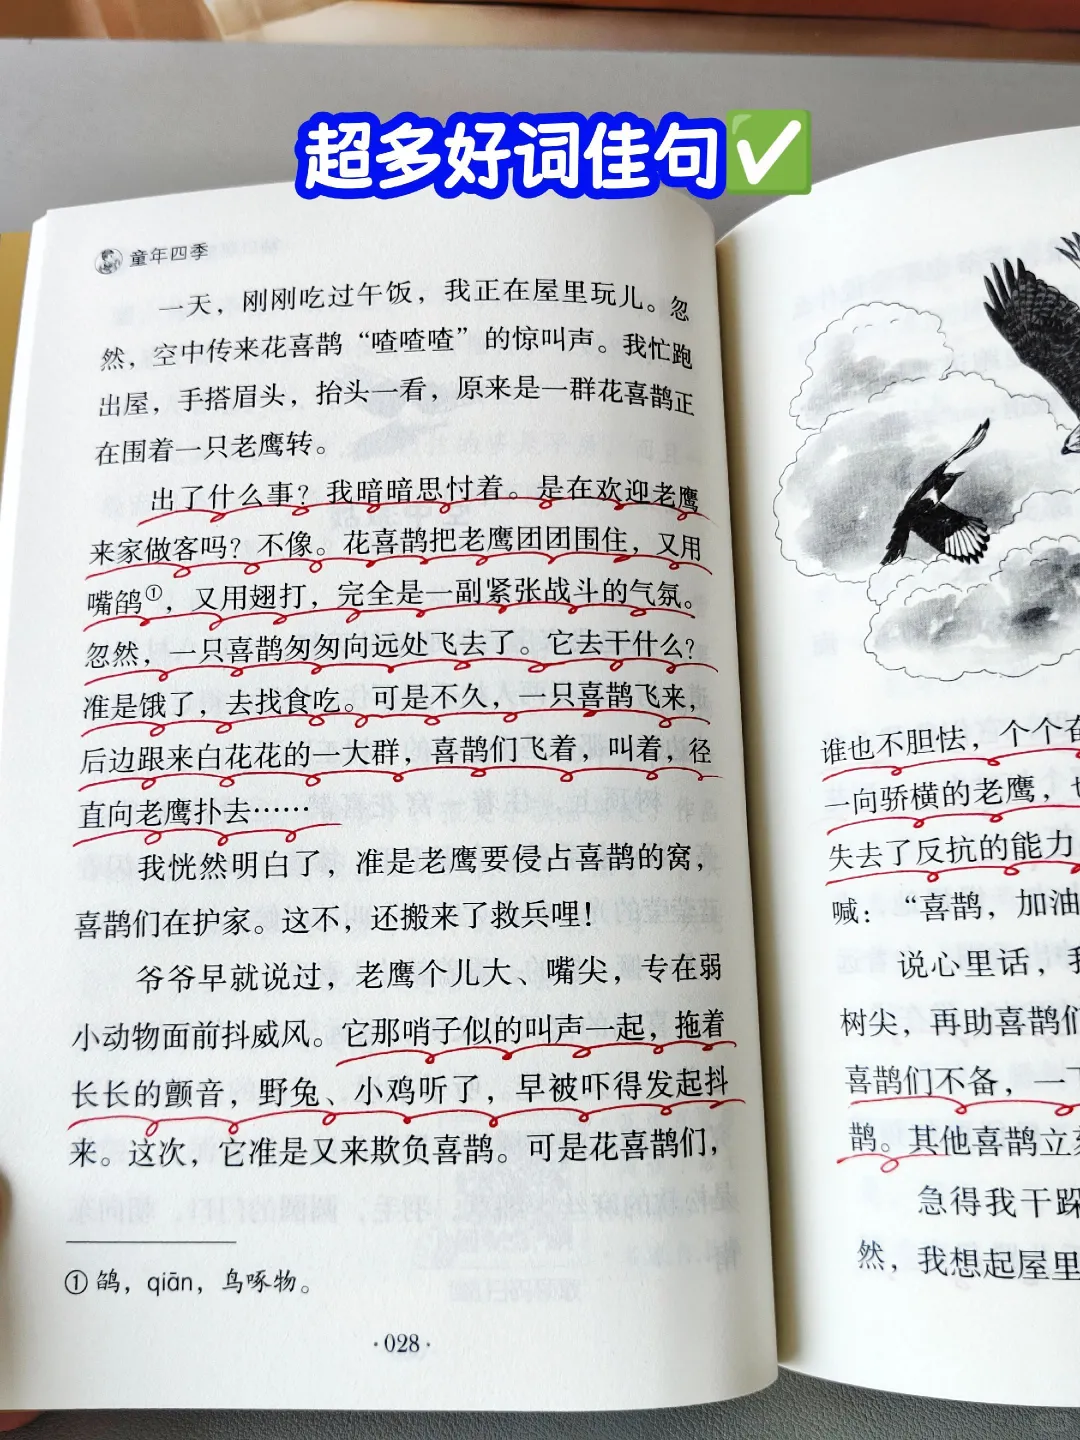 超多好词佳句✅
童年四季
一天，刚刚吃过午饭，我正在屋里玩儿。忽
然，空中传来花喜鹊“喳喳喳”的惊叫声。我忙跑
出屋，手搭眉头，抬头一看，原来是一群花喜鹊正
在围着一只老鹰转。
出了什么事？我暗暗思忖着。是在欢迎老鹰
来家做客吗？不像。花喜鹊把老鹰团团围住，又用
嘴鹐①，又用翅打，完全是一副紧张战斗的气氛。
忽然，一只喜鹊匆匆向远处飞去了。它去干什么？
准是饿了，去找食吃。可是不久，一只喜鹊飞来，
后边跟来白花花的一大群，喜鹊们飞着，叫着，径
直向老鹰扑去……
我恍然明白了，准是老鹰要侵占喜鹊的窝，
喜鹊们在护家。这不，还搬来了救兵哩！
爷爷早就说过，老鹰个儿大、嘴尖，专在弱
小动物面前抖威风。它那哨子似的叫声一起，拖着
长长的颤音，野兔、小鸡听了，早被吓得发起抖
来。这次，它准是又来欺负喜鹊。可是花喜鹊们，
① 鹐，qiān，鸟啄物。
·028·
谁也不胆怯，个个
一向骄横的老鹰，
失去了反抗的能力
喊：“喜鹊，加油
说心里话，
树尖，再助喜鹊们
喜鹊们不备，一
鹊。其他喜鹊立刻
急得我干跺
然，我想起屋里